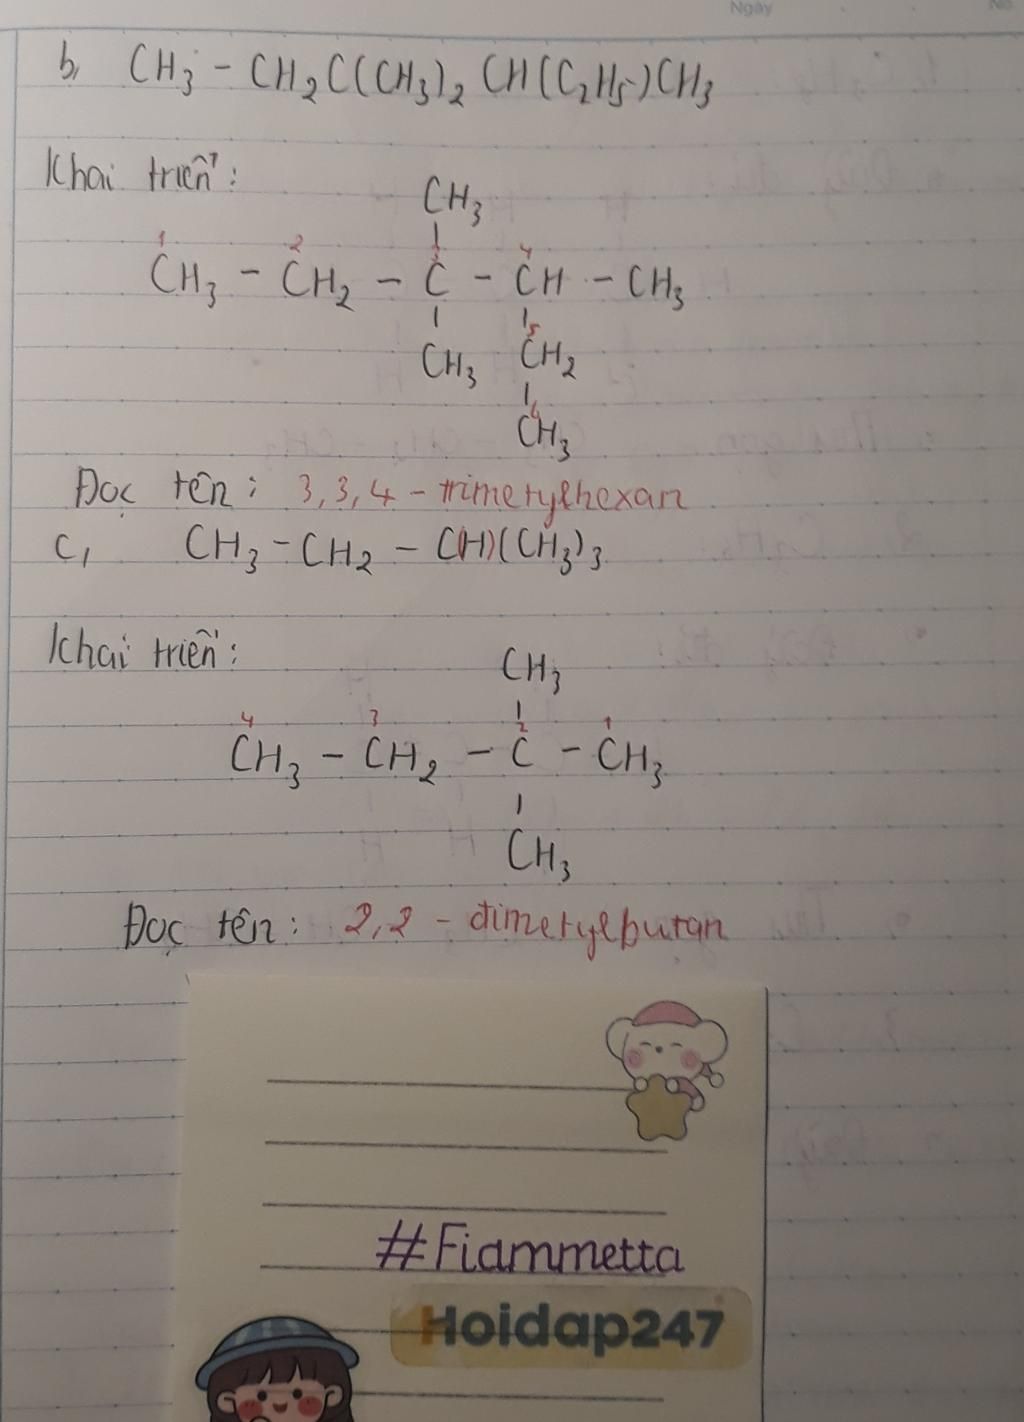 Ngày
No.
b, CH3 - CH2C(CH3)2 CH(C2H5)CH3
Khai triển:
CH3
1 2 3 4
CH3 - CH2 - C - CH - CH3
5
CH3 CH2
6
CH3
Đọc tên: 3,3,4 - trimetylhexan
c, CH3 - CH2 - C(H)(CH3)3
Khai triển:
CH3
4 3 2 1
CH3 - CH2 - C - CH3
CH3
Đọc tên: 2,2 - đimetylbutan
#Fiammetta
Hoidap247